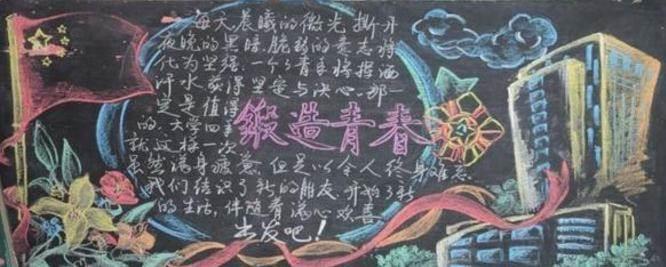 每天晨曦的微光撕开
夜晚的黑暗,脆弱的意志将
化为坚强。一个个青年将挥洒
汗水获得坚定与决心。那一
定是值得
的。大学四年
就这一次
鍛造青春
虽然满身疲惫,但是以令人终身难忘.
我们结识了新的朋友,开拓了新
的生活,伴随着满心欢喜
出发吧!